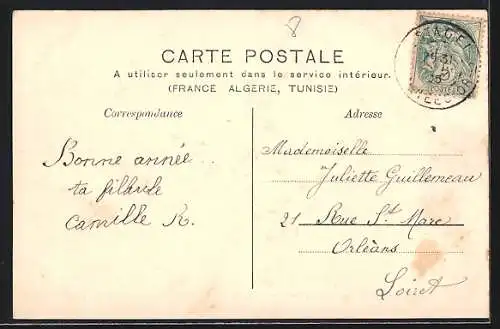 8
CARTE POSTALE
A utiliser seulement dans le service intérieur.
(FRANCE ALGERIE, TUNISIE)
Correspondance
Adresse
Bonne année ..
ta filleule
Camille R.
Mademoiselle
Juliette Guillemeau
21 Rue St. Marc
Orléans
Loiret